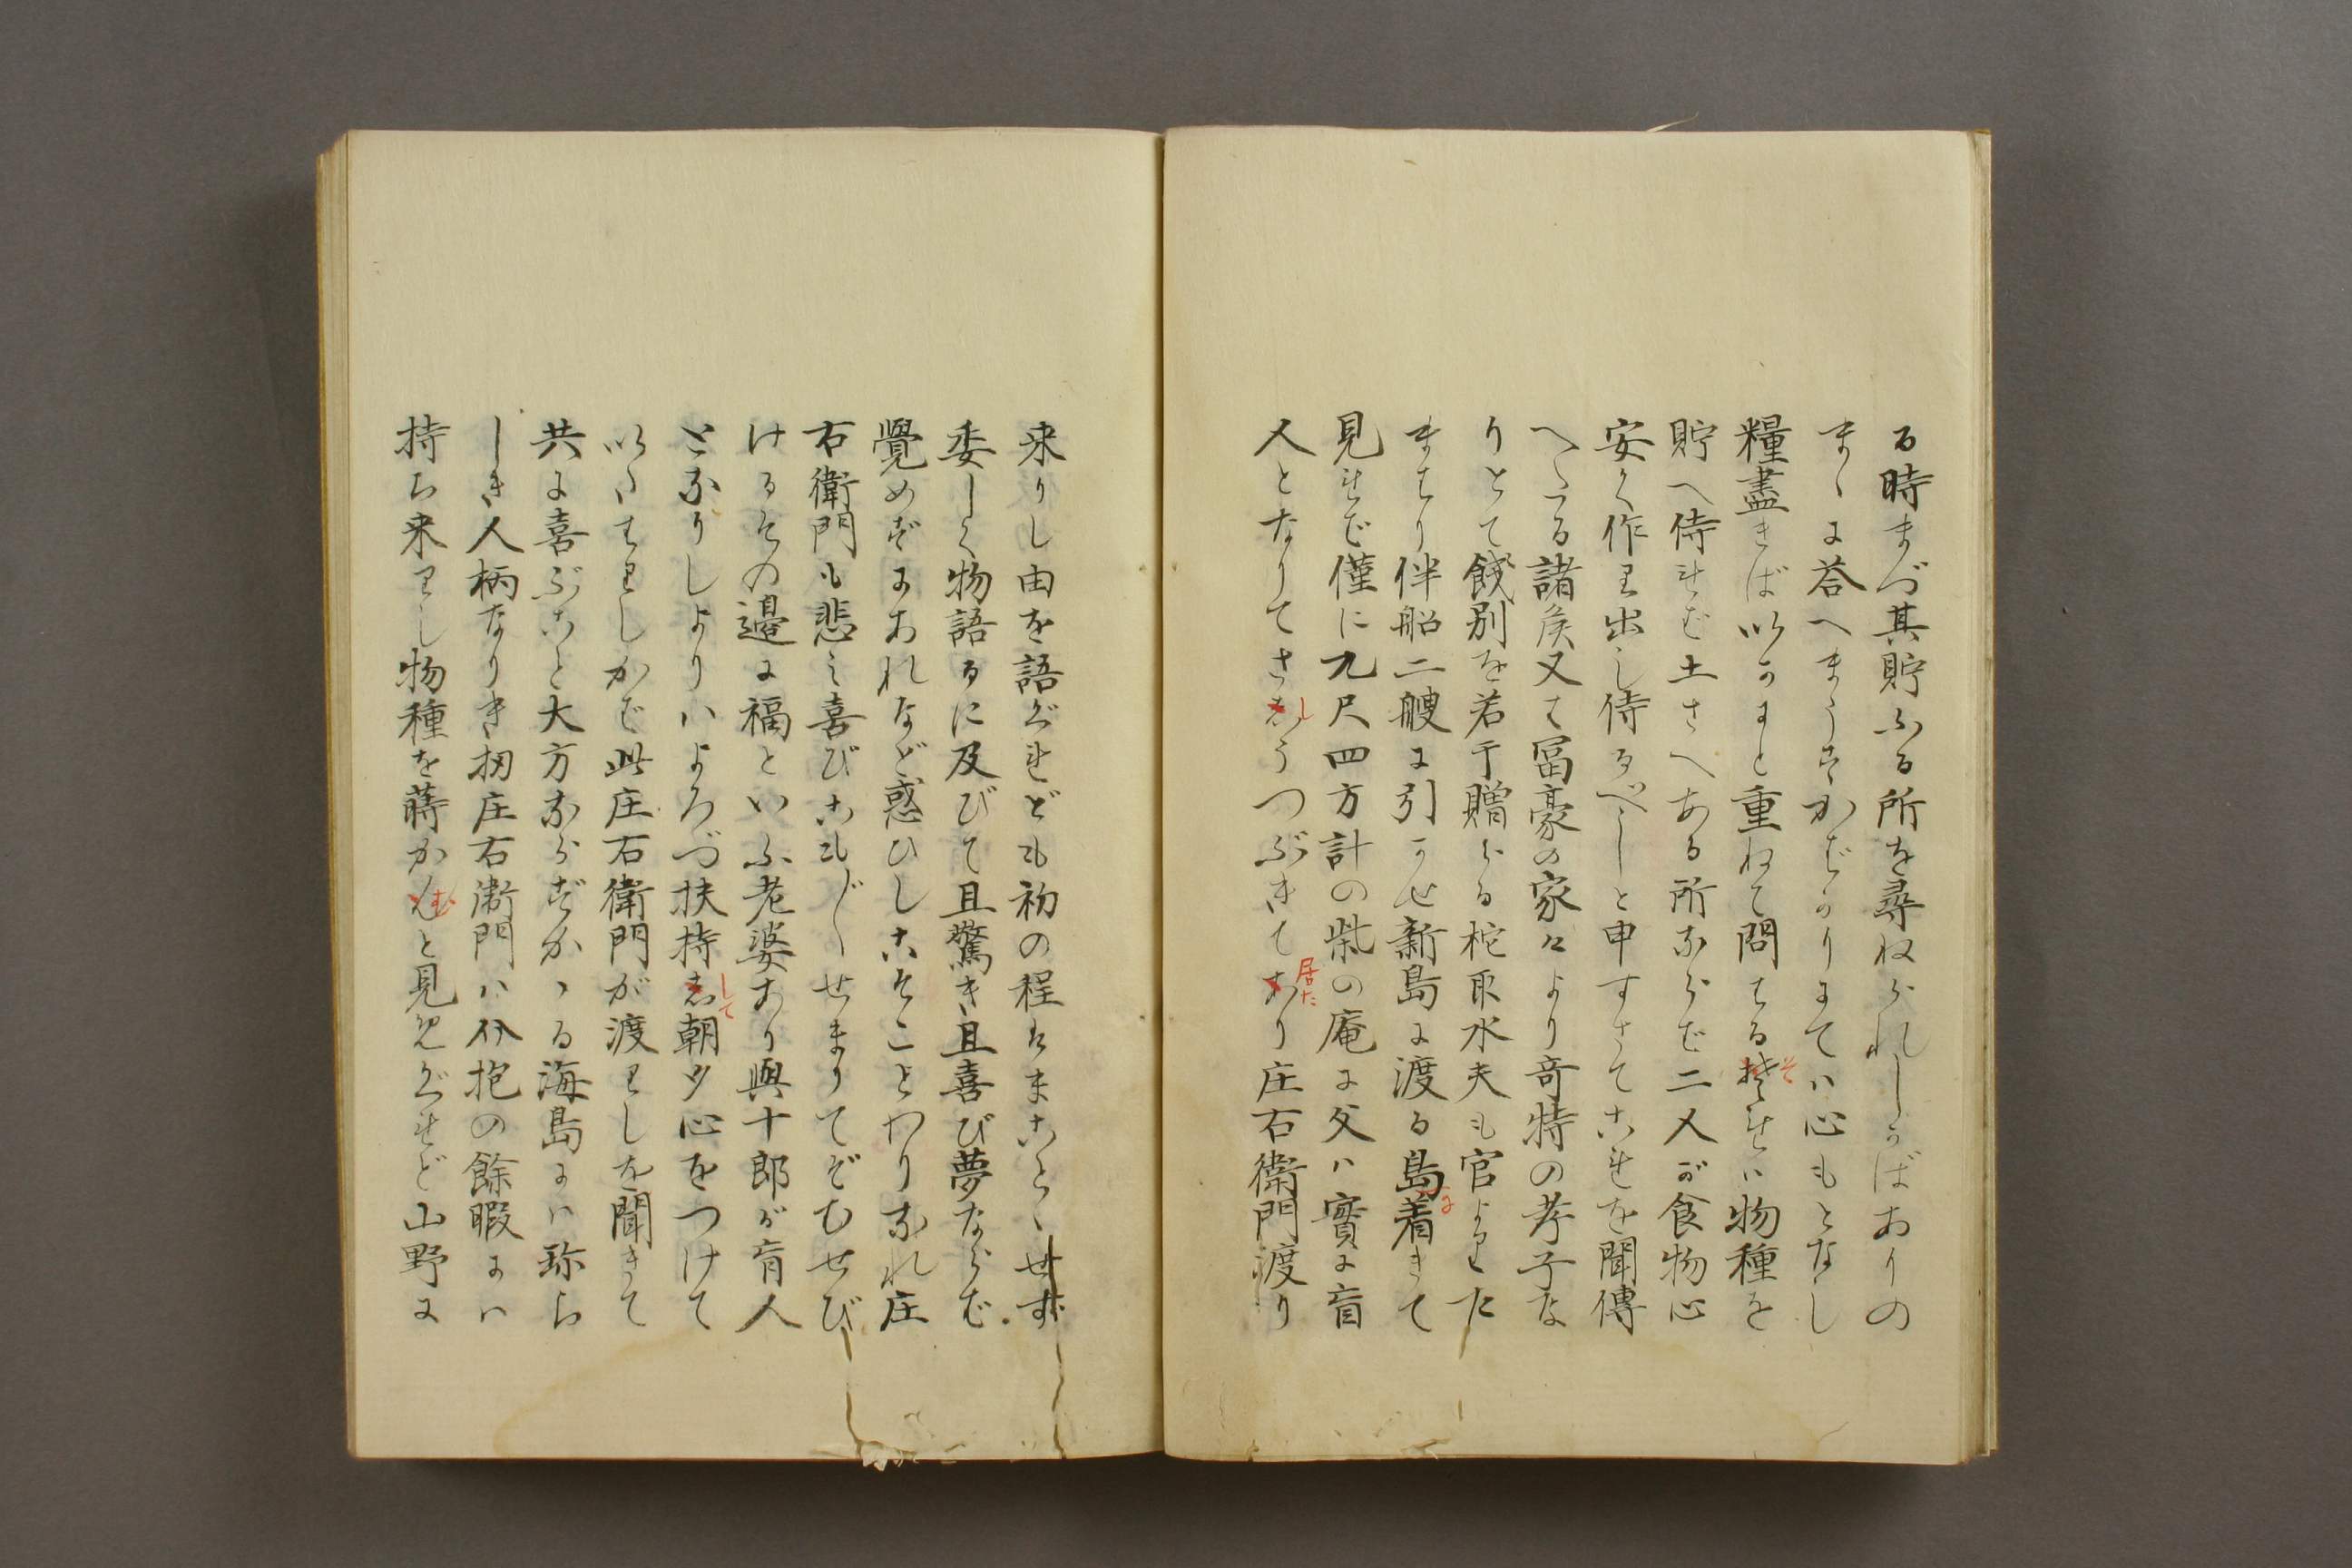 る時まづ其貯ふる所を尋ねられしかばありの
まゝに答へまうすかばかりにては心もとなし
糧盡きば以かにと重ねて問はるそれは物種を
貯へ侍れば土さへある所ならば二人が食物心
安く作り出し侍るべしと申すさてこれを聞傳
へたる諸侯又は冨豪の家々より奇特の孝子な
りとて餞別を若干贈らる柁取水夫も官よりた
まはり伴船二艘に引かせ新島に渡る島に着きて
見れば僅に九尺四方計の柴の庵に父ハ實に盲
人となりてさしうつぶきて居たり庄右衛門渡り
来りし由を語ぐれども初の程はまことゝせず
委しく物語るに及びて且驚き且喜び夢ならば
覺めずにあれなど惑ひしこそことわりなれ庄
右衛門も悲み喜びこもごもせまりてぞむせび
けるその邉に福といふ老婆あり與十郎が盲人
となりしよりハよろづ扶持して朝夕心をつけて
以たはりしかば此庄右衛門が渡りしを聞きて
共に喜ぶこと大方ならずかゝる海島にハ珎ら
しき人柄なりき扨庄右衛門ハ介抱の餘暇にハ
持ち来りし物種を蒔かむと見めぐれど山野に